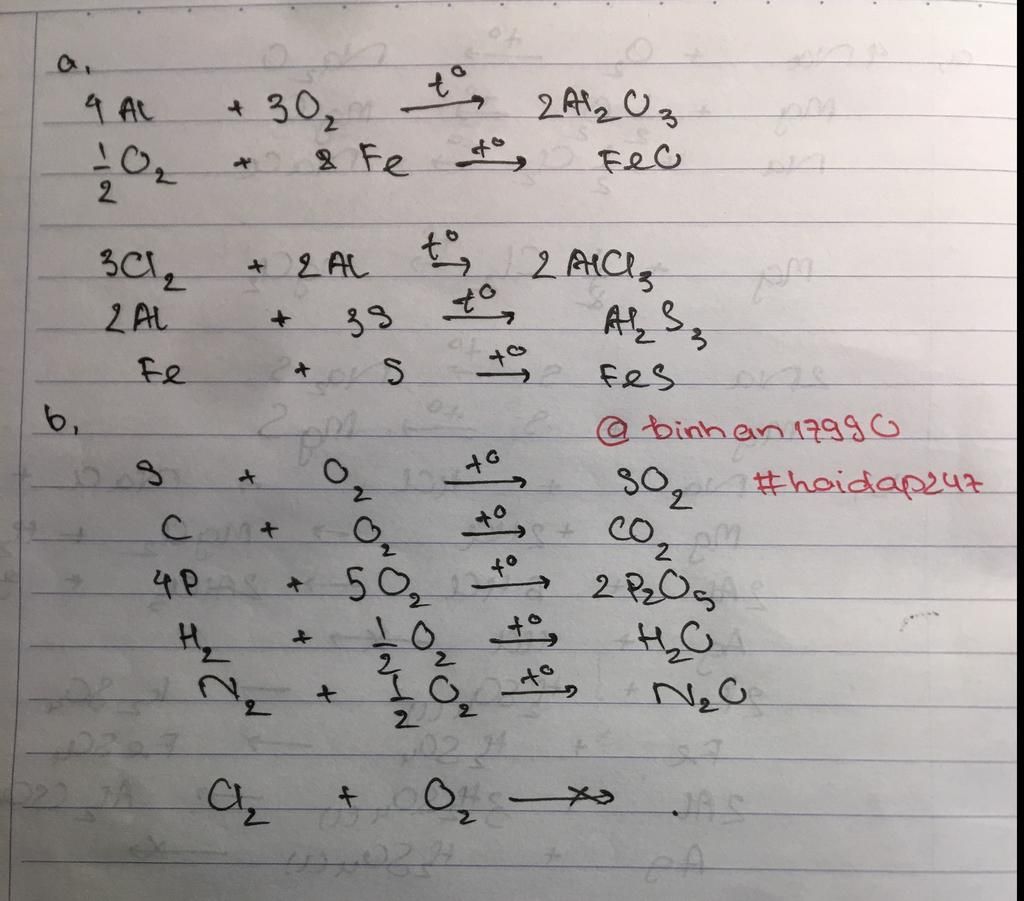 a,
4Al + 3O₂ —t°→ 2Al₂O₃
½O₂ + Fe —t°→ FeO
3Cl₂ + 2Al —t°→ 2AlCl₃
2Al + 3S —t°→ Al₂S₃
Fe + S —t°→ FeS
b,
@binhan17990
S + O₂ —t°→ SO₂ #hoidap247
C + O₂ —t°→ CO₂
4P + 5O₂ —t°→ 2P₂O₅
H₂ + ½O₂ —t°→ H₂O
N₂ + ½O₂ —t°→ N₂O
Cl₂ + O₂ —×→ .